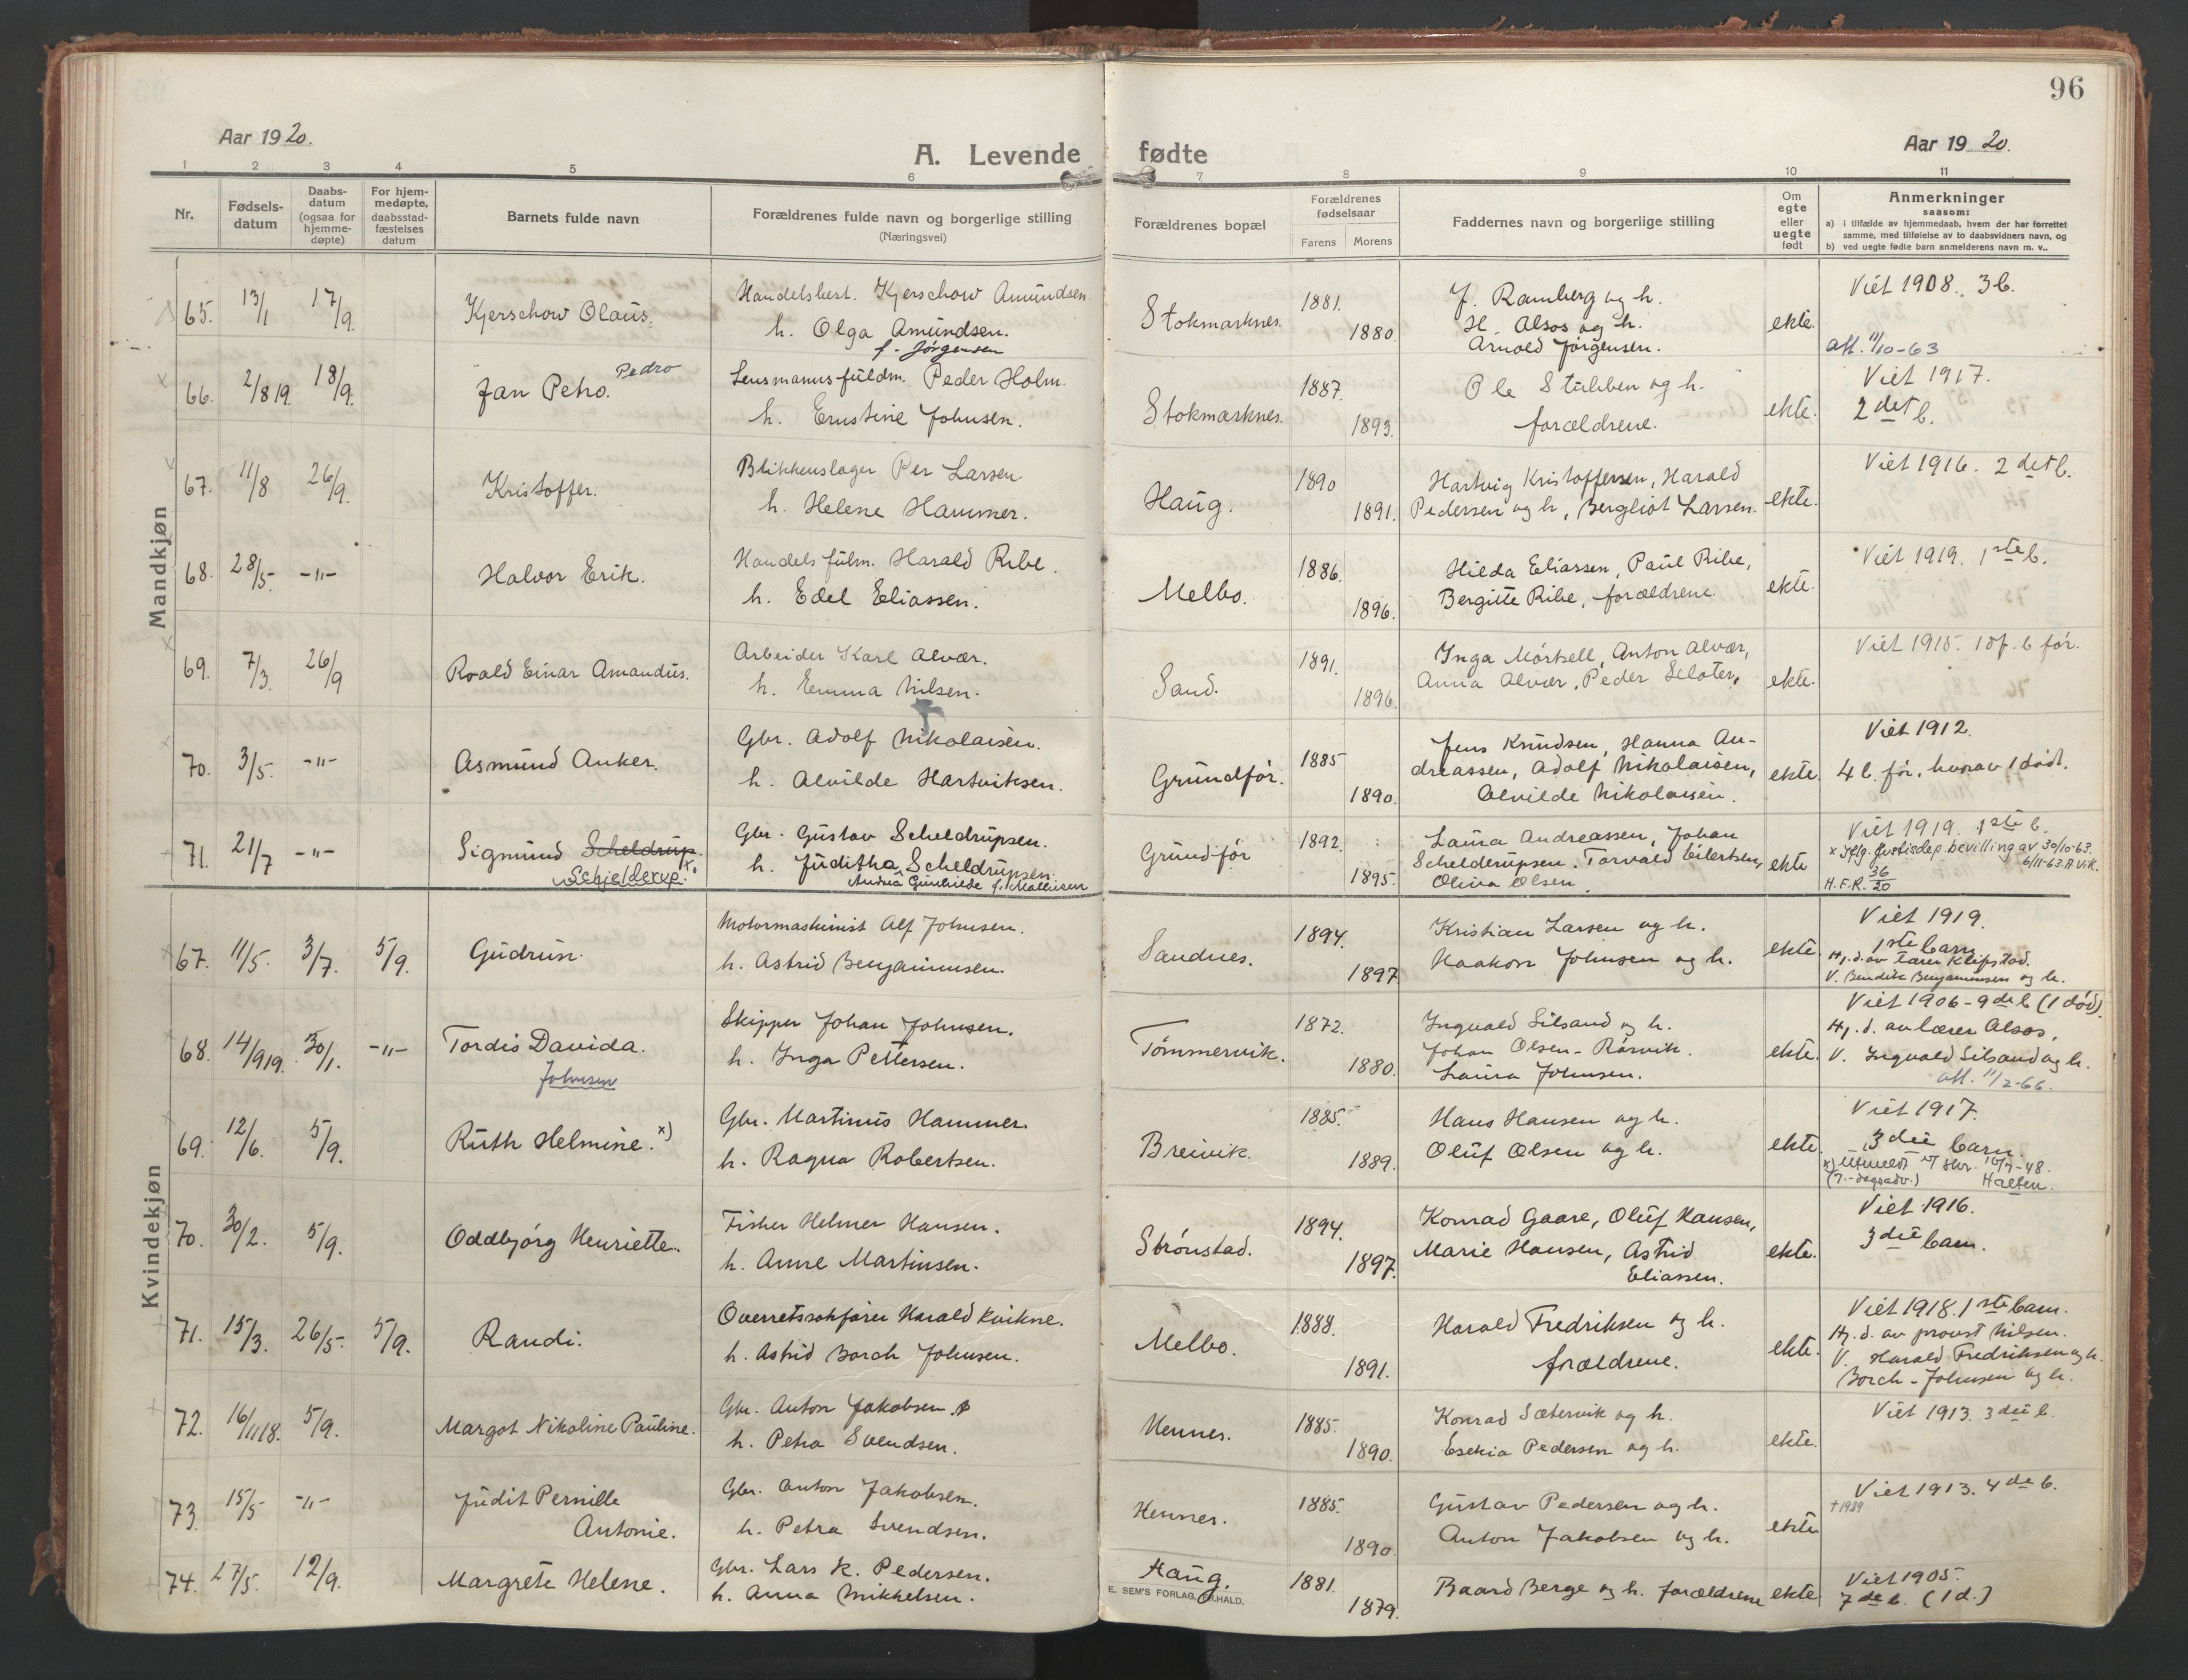 96
Aar 1920.
A. Levende fødte
Aar 1920.
1 2 3 4 5 6 7 8 9 10 11
Nr.
Fødsels-
datum
Daabs-
datum
(ogsaa for
hjemme-
døpte)
For hjem-
medøpte,
daabsstad-
fæstelses
datum
Barnets fulde navn
Forældrenes fulde navn og borgerlige stilling
(Næringsvei)
Forældrenes bopæl
Forældrenes
fødselsaar
Farens Morens
Faddernes navn og borgerlige stilling
Om
egte
eller
uegte
født
Anmerkninger
saasom:
a) i tilfælde av hjemmedaab, hvem der har forrettet
samme, med tilføielse av to daabsvidners navn, og
b) ved uegte fødte barn anmelderens navn m. v..
Mandkjøn
65. 13/1 17/9. Kjerschow Olaus.
Handelsbest. Kjerschow Amundsen.
h. Olga Amundsen.
f. Jørgensen
Stokmarknes. 1881. 1880.
J. Ramberg og h.
H. Alsos og h.
Arnold Jørgensen.
ekte.
Viet 1908. 3 b.
att. 11/10-63
66. 2/8 19. 18/9. Jan Petro. Pedro
Lensmannsfuldm. Peder Holm.
h. Ernstine Johnsen.
Stokmarknes. 1887. 1893.
Ole Stubben og h.
forældrene.
ekte.
Viet 1917.
2det b.
67. 11/8 26/9. Kristoffer.
Blikkenslager Per Larsen
h. Helene Hammer.
Haug. 1890 1891.
Hartvig Kristoffersen, Harald
Pedersen og h, Bergliot Larsen.
ekte.
Viet 1916. 2det b.
68. 28/5- -"- Halvor Erik.
Handelsfulm. Harald Ribe.
h. Edel Eliassen.
Melbo. 1886. 1896.
Hilda Eliassen, Paul Ribe,
Bergitte Ribe, forældrene.
ekte.
Viet 1919. 1ste b.
69. 7/3. 26/9 Roald Einar Amandus.
Arbeider Karl Alvær.
h. Emma Nilsen.
Sand. 1891. 1896.
Inga Mørkell, Anton Alvær,
Anna Alvær, Peder Sloter,
ekte.
Viet 1915. 1 df. b før.
70. 3/5. -"- Asmund Anker.
Gbr. Adolf Nikolaisen.
h. Alvilde Hartviksen.
Grundfør. 1885 1890.
Jens Knudsen, Hanna An-
dreassen, Adolf Nikolaisen,
Alvilde Nikolaisen.
ekte.
Viet 1912.
4 b. før, hvorav 1 død.
71. 21/7 -"- Sigmund Scheldrup. x.
Schjelderup.
Gbr. Gustav Scheldrupsen.
h. Juditha Scheldrupsen.
Andrea Gunhilde f. Mathisen
Grundfør 1892. 1895.
Laura Andreassen, Johan
Schelderupsen. Torvald Eilertsen,
Oliva Olsen.
ekte
Viet 1919. 1ste b.
x Iflg. Justisdep. bevilling av 30/10-63.
6/11-63. A Vik.
H.F.R. 36/20
Kvindekjøn
67. 11/5. 3/7. 5/9. Gudrun.
Motormaskinist Alf Johnsen.
h. Astrid Benjaminsen.
Sandnes. 1894. 1897
Kristian Larsen og h.
Haakon Johnsen og h.
ekte.
Viet 1919.
1ste barn.
Hj. d. av Lærer Klipstad.
V. Bendik Benjaminsen og h.
68. 14/9 19. 30/1. -"- Tordis Davida.
Johnsen
Skipper Johan Johnsen.
h. Inga Pettersen.
Tømmervik. 1872. 1880.
Ingvald Silsand og h.
Johan Olsen-Rørvik.
Laura Johnsen.
ekte.
Viet 1906-9de b (1 død).
Hj. d. av lærer Alsos,
V. Ingvald Silsand og h.
att. 11/2-66.
69. 12/6. 5/9. Ruth Helmine. x)
Gbr. Martinus Hammer.
h. Ragna Robertsen.
Breivik. 1885. 1889.
Hans Hansen og h.
Oluf Olsen og h.
ekte.
Viet 1917.
3die barn.
x) Utmeldt
(7.-dagsadv.) Halten.
70. 30/2. 5/9. Oddbjørg Henriette.
Fisker Helmer Hansen.
h. Anne Martinsen.
Strønstad. 1894. 1897.
Konrad Gaare, Oluf Hansen,
Marie Hansen, Astrid
Eliassen.
ekte.
Viet 1916.
3die barn.
71. 15/3. 26/5- 5/9. Randi.
Overretssakfører Harald Kvikne.
h. Astrid Borch Johnsen.
Melbo. 1888. 1891.
Harald Fredriksen og h.
forældrene.
ekte.
Viet 1918. 1ste barn.
Hj. d. av provst Nilsen.
V. Harald Fredriksen og h.
Borch-Johnsen og h.
72. 16/11 18. 5/9. Margot Nikoline Pauline.
Gbr. Anton Jakobsen.
h. Petra Svendsen.
Hennes. 1885. 1890.
Konrad Sætervik og h.
Esekia Pedersen og h.
ekte.
Viet 1913. 3die b.
73. 15/5 -"- Judit Pernille
Antonie.
Gbr. Anton Jakobsen.
h. Petra Svendsen.
Hennes. 1885. 1890.
Gustav Pedersen og h.
Anton Jakobsen og h.
ekte
Viet 1913. 4de b.
†1939
74. 27/5. 12/9. Margrete Helene.
Gbr. Lars K. Pedersen.
h. Anna Mikkelsen.
Haug. 1881. 1879.
Baard Berge og h. forældrene
ekte
Viet 1905.
7de b. (1 d.)
E. SEM'S FORLAG, HALD.